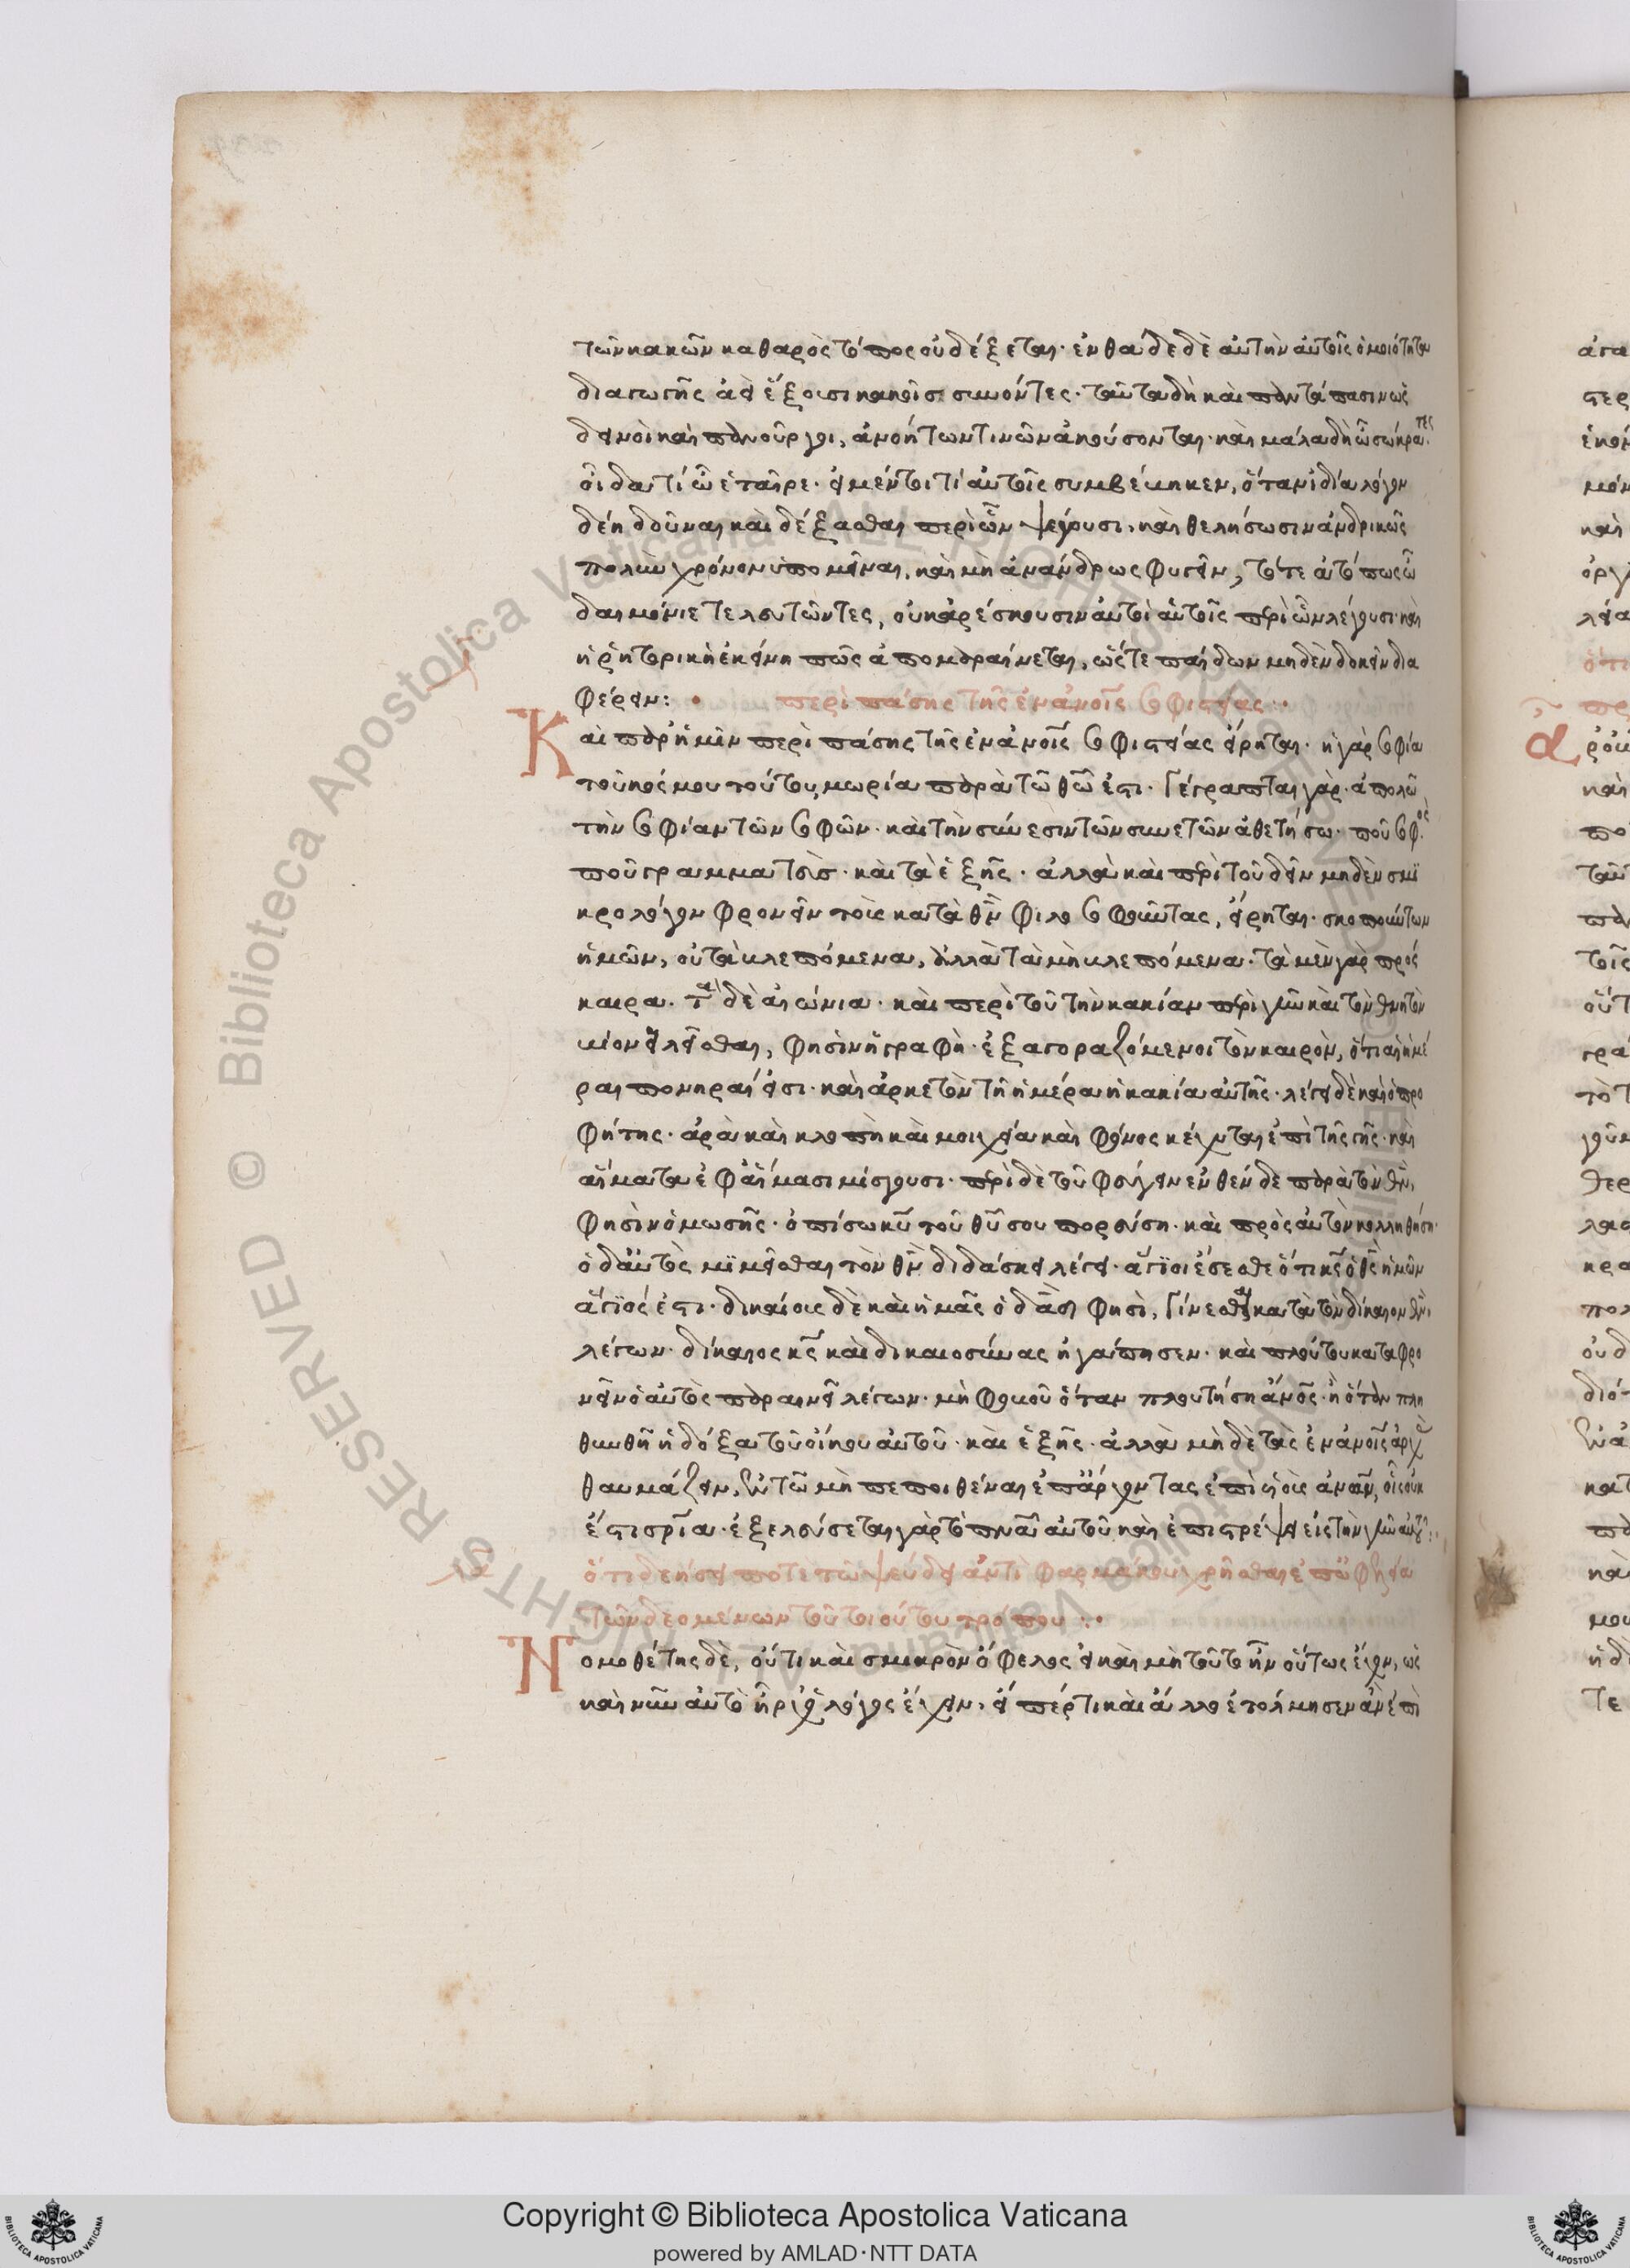 τῶν κακῶν καθαρὸς τόπος οὐ δέξεται· ἐνθάδε δὲ αὐτὴν αὐτοῖς ὁμοιότητα
διαγωγῆς ἀεὶ ἕξουσι κακοῖς συνόντες· ταῦτα δὴ καὶ παντάπασιν ὡς
δεινοὶ καὶ πανοῦργοι, ἀνοήτων τινῶν ἀκούσονται· καὶ μάλα δὴ ὦ σώκρατες
οἶδα τί ὦ ἑταῖρε· ἓν μέντοι τί αὐτοῖς συμβέβηκεν, ὅταν ἰδία λόγον
δέη δοῦναι καὶ δέξασθαι περὶ ὧν ψέγουσι, καὶ θελήσωσιν ἀνδρικῶς
πολὺν χρόνον ὑπομεῖναι, καὶ μὴ ἀνάνδρως φυγεῖν, τότε ἀτόπως ὦ
δαιμόνιε τελευτῶντες, οὐκ ἀρέσκουσιν αὐτοὶ αὐτοῖς περὶ ὧν λέγουσι· καὶ
ἡ ῥητορικὴ ἐκείνη πῶς ἀπομαραίνεται, ὥστε παίδων μηδὲν δοκεῖν δια
φέρειν:
περὶ πάσης τῆς ἐν ἀνοις σοφιστείας:
Καὶ παρ' ἡμῖν περὶ πάσης τῆς ἐν ἀνοις σοφιστείας εἴρηται· ἡ γὰρ σοφία
τοῦ κόσμου τούτου, μωρία παρὰ τῶ θω ἐστι· Γέγραπται γάρ· ἀπολῶ
τὴν σοφίαν τῶν σοφῶν· καὶ τὴν σύνεσιν τῶν συνετῶν ἀθετήσω· ποῦ σοφός
ποῦ γραμματεὺς· καὶ τὰ ἑξῆς· ἀλλὰ καὶ περὶ τοῦ δεῖν μηδὲν σμι
κρολόγον φρονεῖν τοῖς κατὰ θν φιλοσοφοῦντας, εἴρηται· σκοπούντων
ἡμῶν, οὐ τὰ βλεπόμενα, ἀλλὰ τὰ μὴ βλεπόμενα· τὰ μὲν γὰρ πρόσ
καιρα· τὰ δὲ αἰώνια· καὶ περὶ τοῦ τὴν κακίαν περὶ γῆν καὶ τὸν θνητὸν
βίον εἱλεῖσθαι, φησὶν ἡ γραφή· ἐξαγοραζόμενοι τὸν καιρὸν, ὅτι αἱ ἡμέ
ραι πονηραί εἰσι· καὶ ἀρκετὸν τῆ ἡμέρα ἡ κακία αὐτῆς· λέγει δὲ καὶ ὁ προ
φήτης· ἀρὰ καὶ κλοπὴ καὶ μοιχεία καὶ φόνος κέχυται ἐπὶ τῆς γῆς· καὶ
αἵματα ἐφ' αἵμασι μίσγουσι· περὶ δὲ τοῦ φεύγειν ἐνθένδε παρὰ τὸν θν,
φησὶν ὁ μωσῆς· ὀπίσω κυ τοῦ θυ σου πορεύση· καὶ πρὸς αὐτὸν κολληθήση·
ὁ δ' αὐτὸς μιμεῖσθαι τὸν θν διδάσκει λέγει· ἅγιοι ἔσεσθε ὅτι κς ὁ θς ἡμῶν
ἅγιός ἐστι· δικαίοις δὲ καὶ ἡμᾶς ὁ δαδ φησὶ, Γίνεσθαι κατὰ τὸν δίκαιον θν,
λέγων· δίκαιος κς καὶ δικαιοσύνας ἠγάπησεν· καὶ πλούτου καταφρο
νεῖν ὁ αὐτὸς παραινεῖ λέγων· μὴ φοβοῦ ὅταν πλουτήση ἀνος· ἢ ὅταν πλη
θυνθῆ ἡ δόξα τοῦ οἴκου αὐτοῦ· καὶ ἑξῆς· ἀλλὰ μὴ δὲ τὰς ἐν ἀνοις ἀρχὰς
θαυμάζειν, ἐν τῶ μὴ πεποιθέναι ἐπ' ἄρχοντας, ἐπὶ υἱοὺς ἀνων, οἷς οὐκ
ἔστι σρία· ἐξελεύσεται γὰρ τὸ πνα αὐτοῦ καὶ ἐπιστρέψει εἰς τὴν γῆν αὐτοῦ:
ὅτι δεήσει ποτὲ τῶ ψεύδει ἀντὶ φαρμάκου χρῆσθαι ἐπ' ὠφελεία
τῶν δεομένων τοῦ τοιούτου τρόπου:
Νομοθέτης δὲ, οὗ τι καὶ σμικρὸν ὄφελος εἰ καὶ μὴ τοῦτο ἦν οὕτως ἔχον, ὡς
καὶ νῦν αὐτὸ ἥρηχ' ὁ λόγος ἔχειν, εἴπερ τι καὶ ἄλλο ἐτόλμησεν ἂν ἐπ'